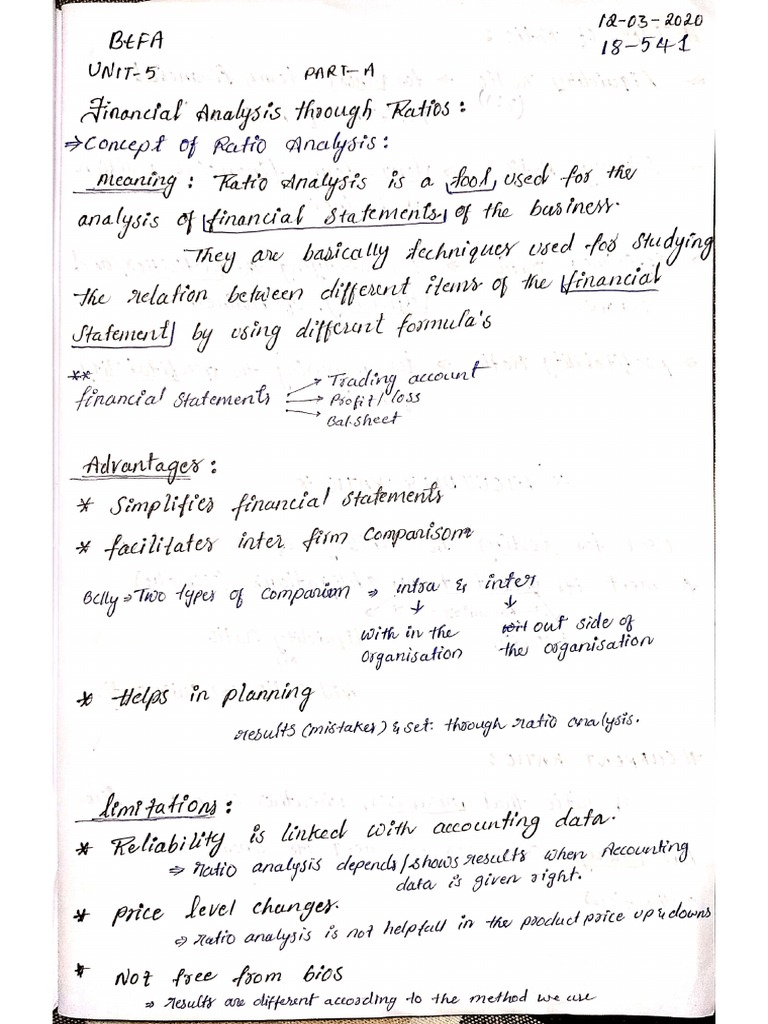 12-03-2020
18-541
BEFA
UNIT-5 PART-A
Financial Analysis through Ratios:
⇒ Concept of Ratio Analysis:
Meaning: Ratio Analysis is a tool used for the
analysis of financial statements of the business.
They are basically techniques used for studying
the relation between different items of the financial
statement by using different formula's
**
financial statements → Trading account
→ Profit/loss
→ Bal.sheet
Advantages:
* Simplifies financial statements
* facilitates inter firm comparison
Bclly ⇒ Two types of comparison ⇒ intra & inter
↓ ↓
with in the out side of
Organisation the organisation
* Helps in planning
results (mistakes) & set: through ratio analysis.
limitations:
* Reliability is linked with accounting data.
⇒ Ratio analysis depends/shows results when Accounting
data is given right.
* price level changes.
⇒ ratio analysis is not helpfull in the product price up & downs
* Not free from bios
⇒ results are different according to the method we use